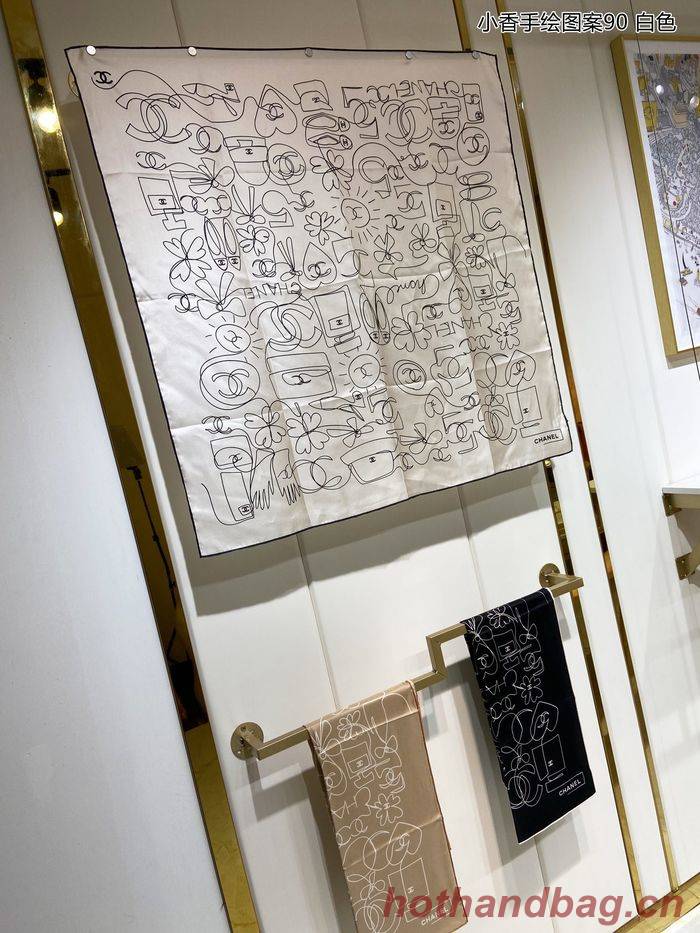 小香手绘图案90 白色
CHANEL
CHANEL
CHANEL
CHANEL
CHANEL
CHANEL
hothandbag.cn